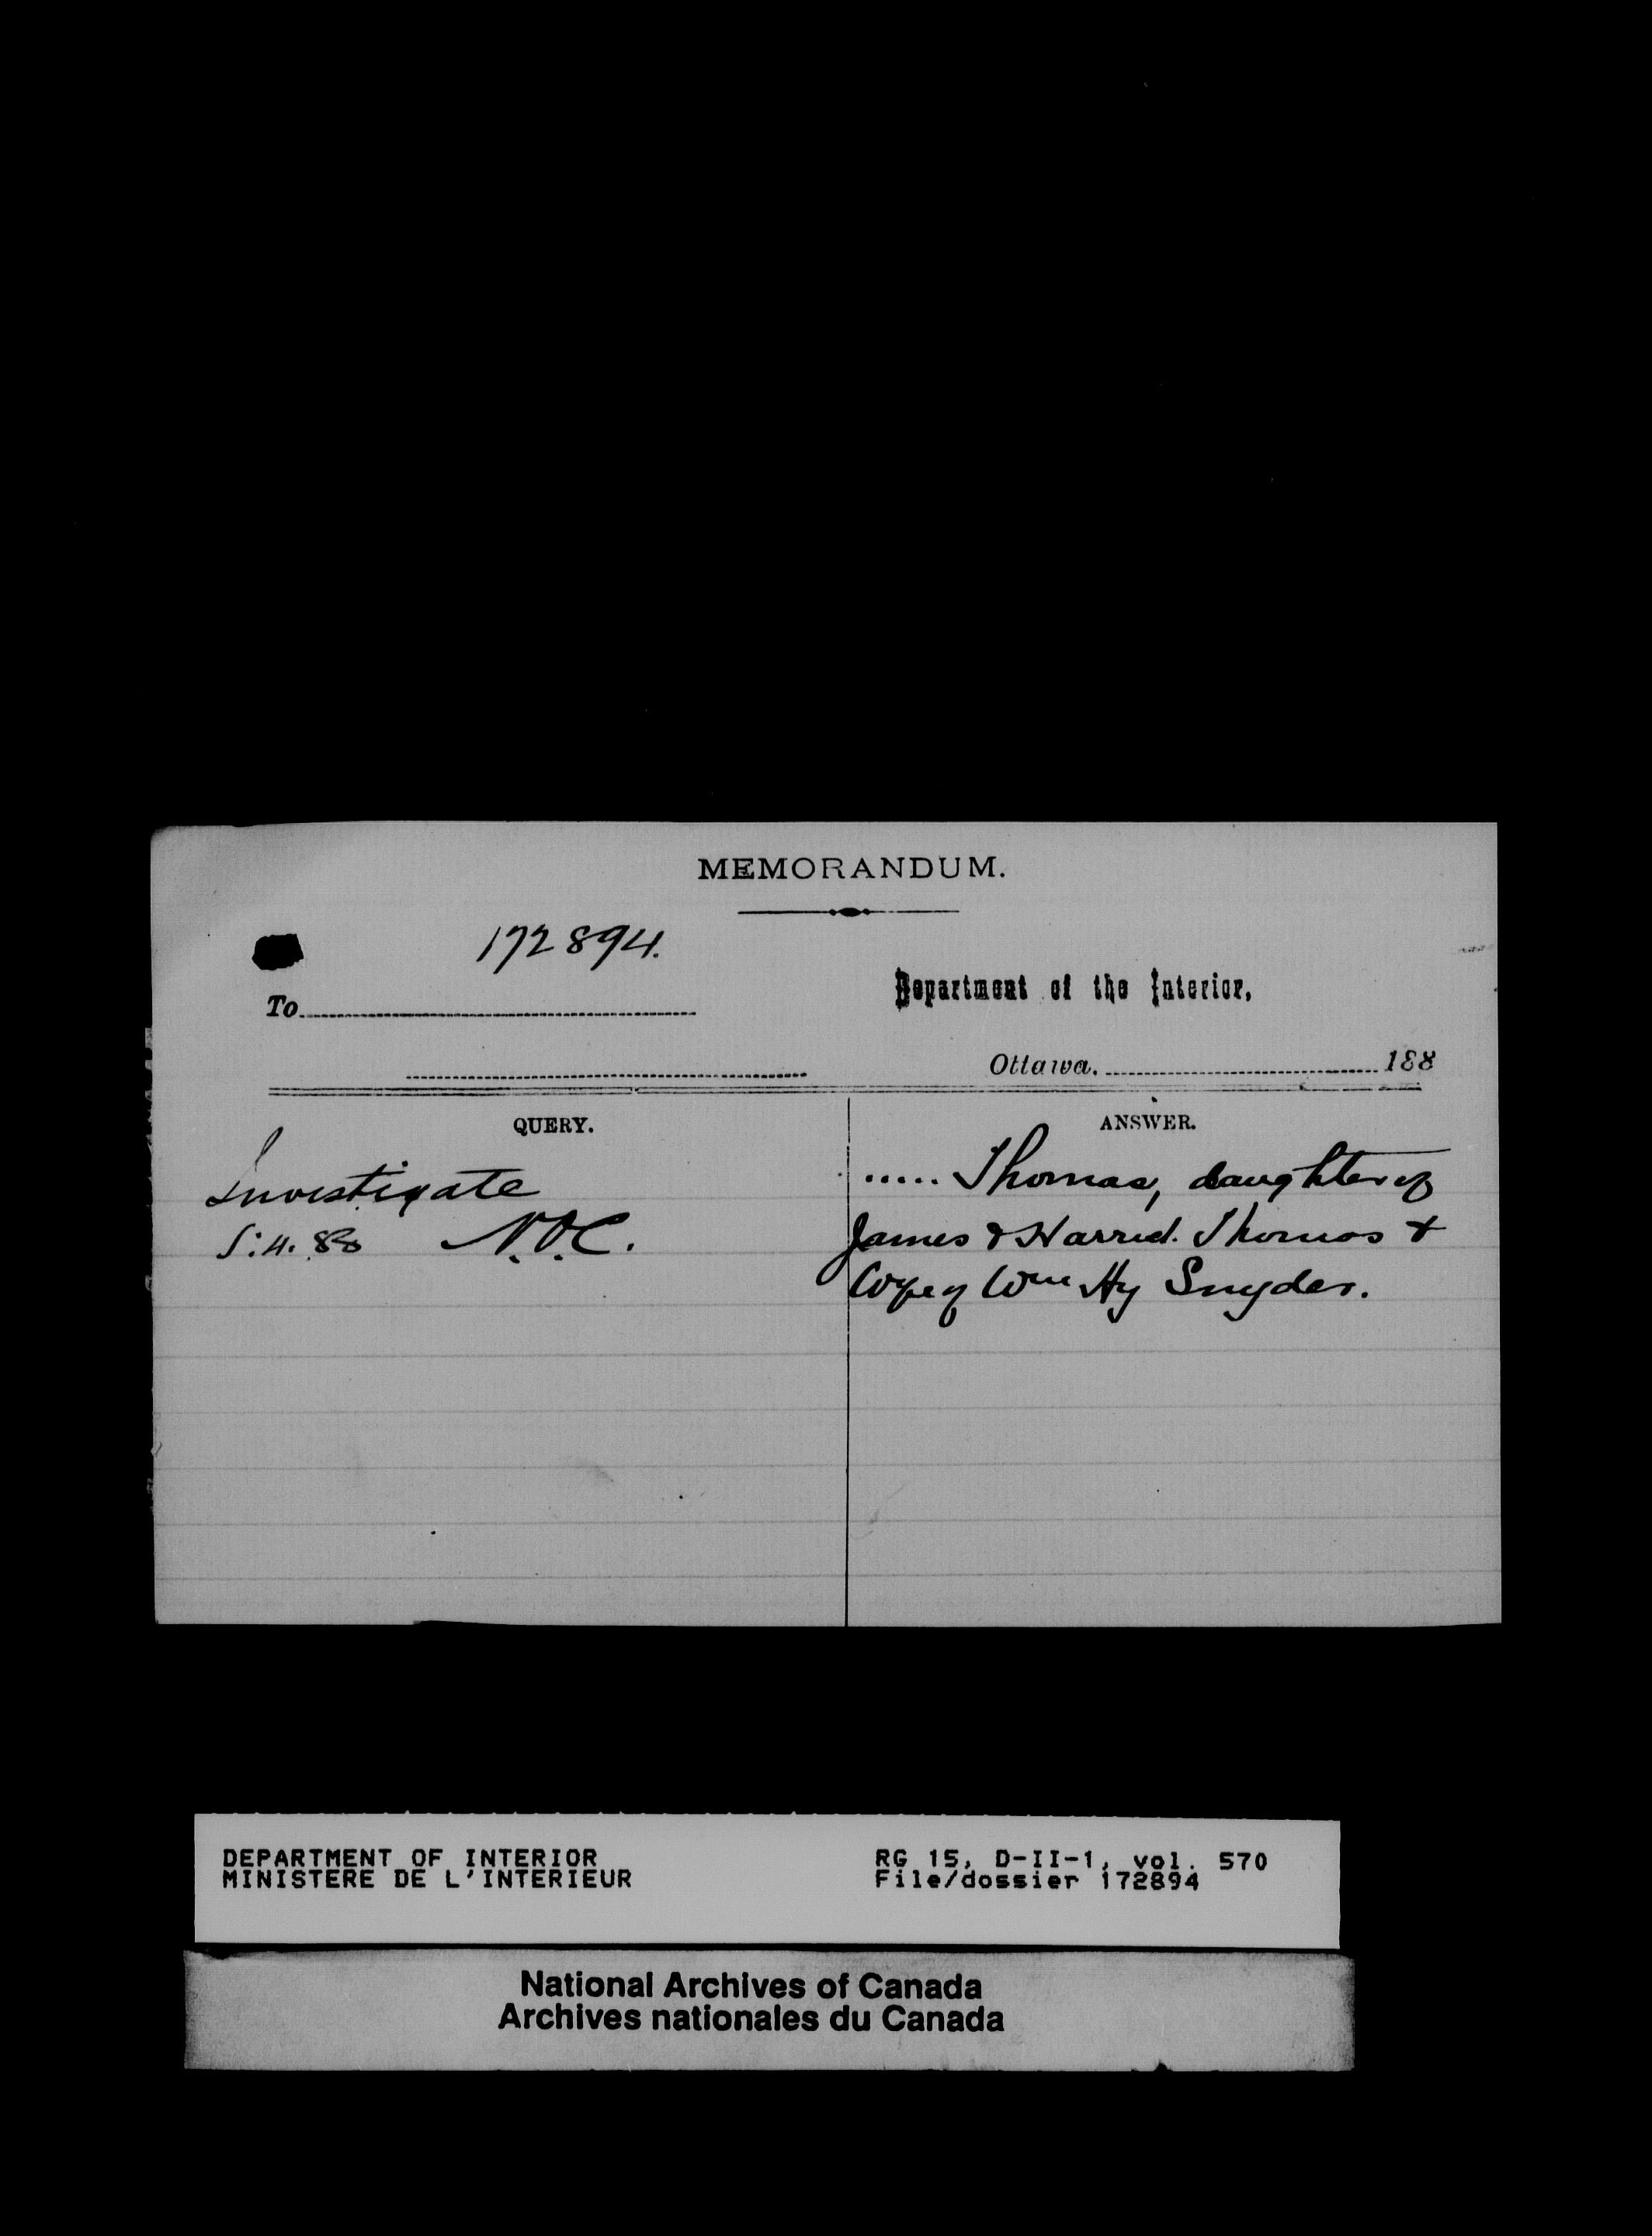 MEMORANDUM.
172894.
To
Department of the Interior,
Ottawa. 188
QUERY.
ANSWER.
Investigate
5.4.88 N.O.C.
..... Thomas, daughter of
James & Harried. Thomas &
Wife of Wm Hy Snyder.
DEPARTMENT OF INTERIOR
MINISTERE DE L'INTERIEUR
RG 15, D-II-1, vol. 570
File/dossier 172894
National Archives of Canada
Archives nationales du Canada